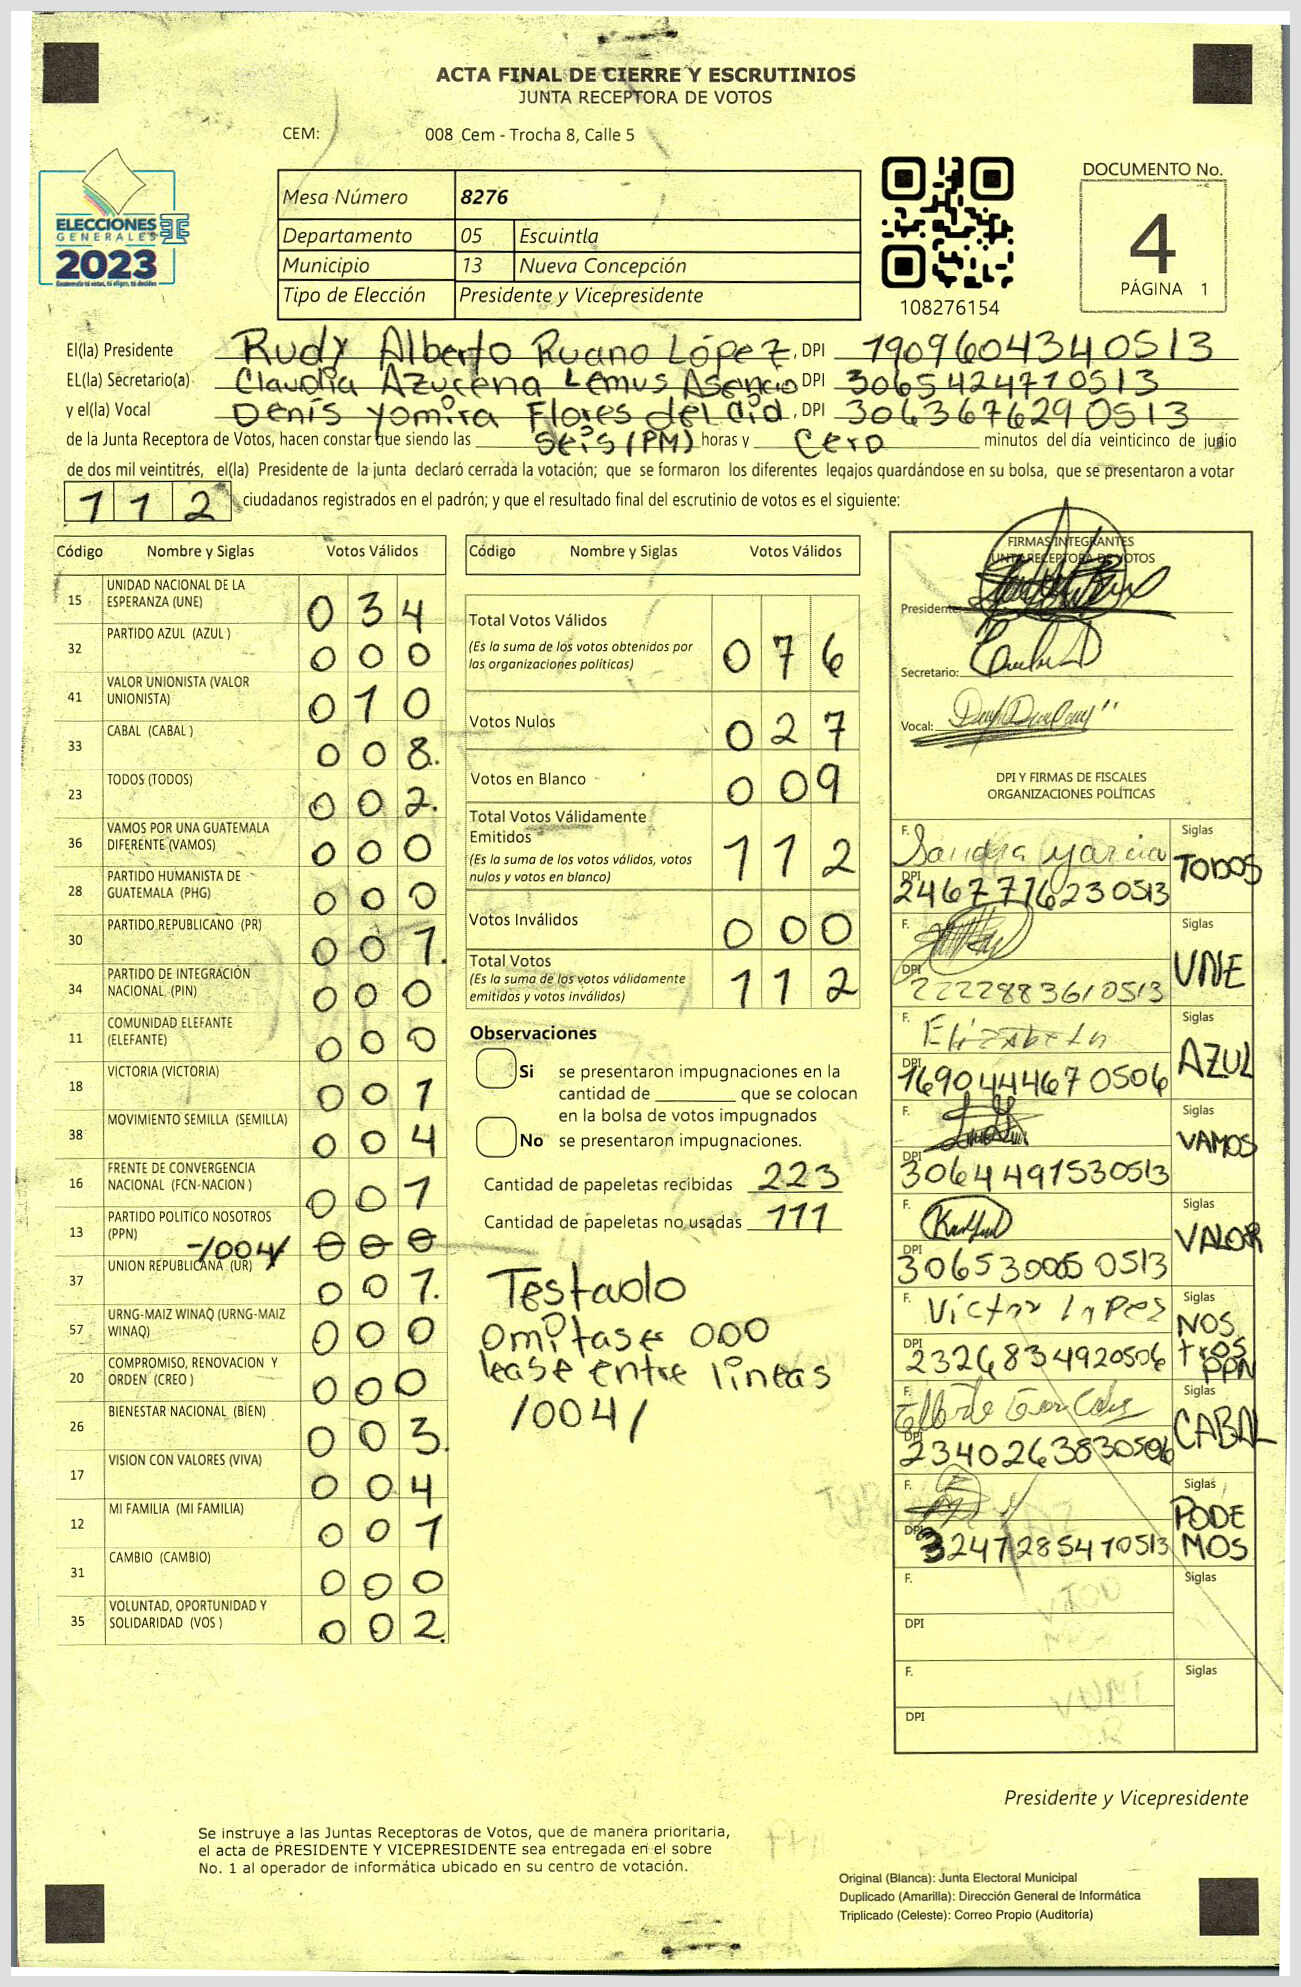 ACTA FINAL DE CIERRE Y ESCRUTINIOS
JUNTA RECEPTORA DE VOTOS
CEM: 008 Cem - Trocha 8, Calle 5
ELECCIONES
GENERALES
2023
Mesa Número 8276
Departamento 05 Escuintla
Municipio 13 Nueva Concepción
Tipo de Elección Presidente y Vicepresidente
108276154
DOCUMENTO No.
4
PÁGINA 1
El(la) Presidente Rudy Alberto Ruano López, DPI 1909604340513
EL(la) Secretario(a) Claudia Azucena Lemus Asencio DPI 3065424710513
y el(la) Vocal Denis Yomira Flores del Cid, DPI 3063676290513
de la Junta Receptora de Votos, hacen constar que siendo las seis (PM) horas y Cero minutos del día veinticinco de junio
de dos mil veintitrés, el(la) Presidente de la junta declaró cerrada la votación; que se formaron los diferentes legajos guardándose en su bolsa, que se presentaron a votar
112 ciudadanos registrados en el padrón; y que el resultado final del escrutinio de votos es el siguiente:
Código Nombre y Siglas Votos Válidos
15 UNIDAD NACIONAL DE LA ESPERANZA (UNE) 034
32 PARTIDO AZUL (AZUL ) 000
41 VALOR UNIONISTA (VALOR UNIONISTA) 010
33 CABAL (CABAL ) 008.
23 TODOS (TODOS) 002.
36 VAMOS POR UNA GUATEMALA DIFERENTE (VAMOS) 000
28 PARTIDO HUMANISTA DE GUATEMALA (PHG) 000
30 PARTIDO REPUBLICANO (PR) 001.
34 PARTIDO DE INTEGRACIÓN NACIONAL (PIN) 000
11 COMUNIDAD ELEFANTE (ELEFANTE) 000
18 VICTORIA (VICTORIA) 001
38 MOVIMIENTO SEMILLA (SEMILLA) 004
16 FRENTE DE CONVERGENCIA NACIONAL (FCN-NACION ) 001
13 PARTIDO POLITICO NOSOTROS (PPN) -/004/ 000
37 UNION REPUBLICANA (UR) 001.
57 URNG-MAIZ WINAQ (URNG-MAIZ WINAQ) 000
20 COMPROMISO, RENOVACION Y ORDEN (CREO ) 000
26 BIENESTAR NACIONAL (BIEN) 003.
17 VISION CON VALORES (VIVA) 004
12 MI FAMILIA (MI FAMILIA) 001
31 CAMBIO (CAMBIO) 000
35 VOLUNTAD, OPORTUNIDAD Y SOLIDARIDAD (VOS ) 002.
Código Nombre y Siglas Votos Válidos
Total Votos Válidos 076
(Es la suma de los votos obtenidos por
las organizaciones políticas)
Votos Nulos 027
Votos en Blanco 009
Total Votos Válidamente
Emitidos 112
(Es la suma de los votos válidos, votos
nulos y votos en blanco)
Votos Inválidos 000
Total Votos 112
(Es la suma de los votos válidamente
emitidos y votos inválidos)
Observaciones
Si se presentaron impugnaciones en la
cantidad de ________ que se colocan
en la bolsa de votos impugnados
No se presentaron impugnaciones.
Cantidad de papeletas recibidas 223
Cantidad de papeletas no usadas 111
Testado
omitase 000
lease entre lineas
/004/
FIRMAS INTEGRANTES
JUNTA RECEPTORA DE VOTOS
Presidente:
Secretario:
Vocal:
DPI Y FIRMAS DE FISCALES
ORGANIZACIONES POLÍTICAS
F. Sandra Garcia Siglas TODOS
DPI 2467776230513
F. Siglas UNE
DPI 2222883610513
F. Elizabeth Siglas AZUL
DPI 1690444670506
F. Siglas VAMOS
DPI 3064491530513
F. Siglas VALOR
DPI 3065300050513
F. Victor Lopes Siglas NOS tros PPN
DPI 2326834920506
F. Siglas CABAL
DPI 2340263830506
F. Siglas PODE MOS
DPI 3247285470513
F. Siglas
DPI
F. Siglas
DPI
Presidente y Vicepresidente
Se instruye a las Juntas Receptoras de Votos, que de manera prioritaria,
el acta de PRESIDENTE Y VICEPRESIDENTE sea entregada en el sobre
No. 1 al operador de informática ubicado en su centro de votación.
Original (Blanca): Junta Electoral Municipal
Duplicado (Amarilla): Dirección General de Informática
Triplicado (Celeste): Correo Propio (Auditoría)